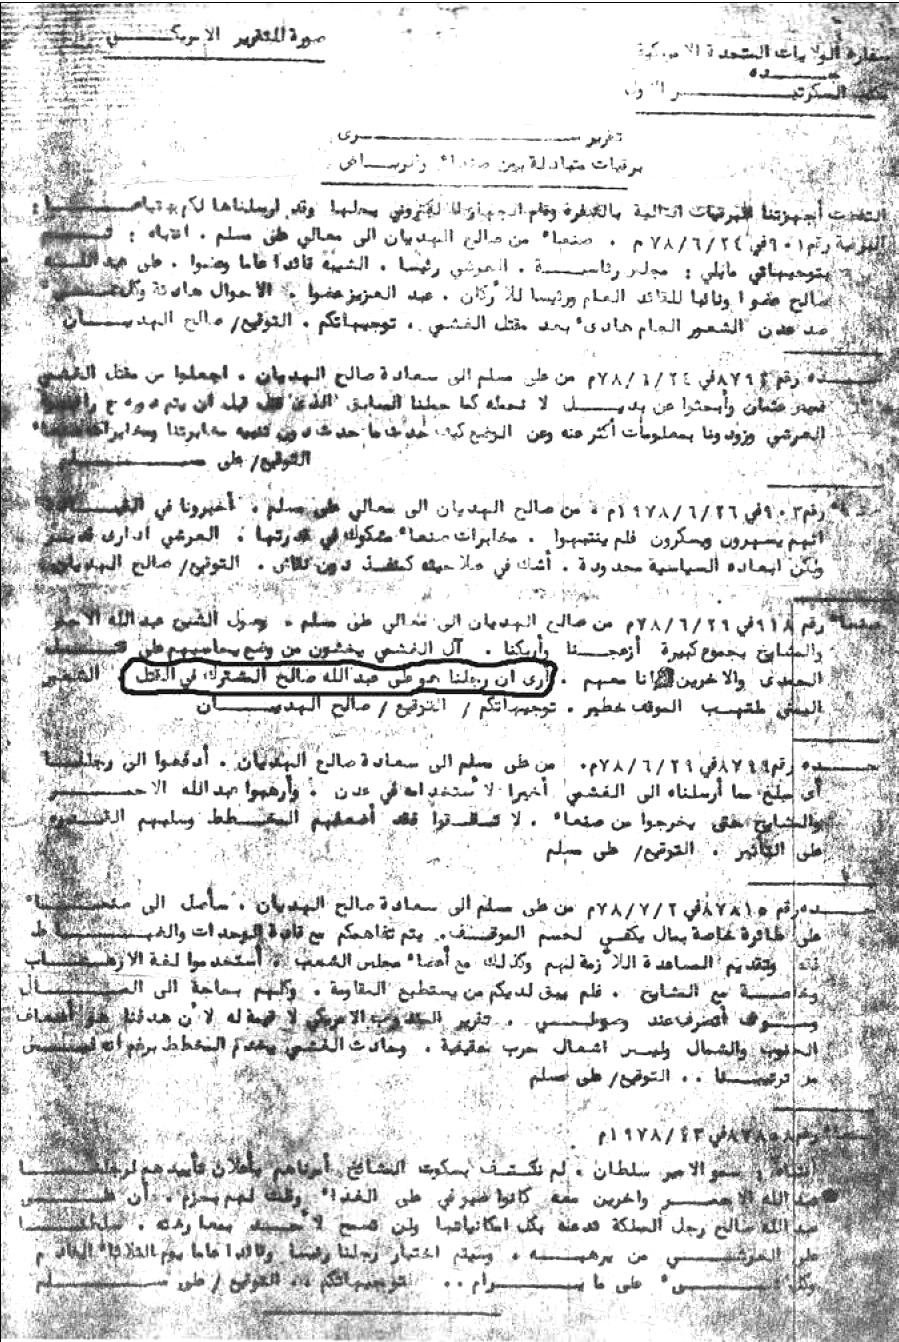 صورة للتقرير الامريكي
سفارة الولايات المتحدة الامريكية
جده
مكتب السكرتير الاول
تقرير سرى
برقيات متبادلة بين صنعاء والرياض
التقطت أجهزتنا البرقيات التالية بالشفرة وقام الجهاز الالكتروني بحلها وقد ارسلناها لكم
البرقية رقم ٩٠١ في ٧٨/٦/٢٤ م . صنعاء من صالح الهديان الى معالي على مسلم . انتباه :
بتوجيهاتي مايلي : مجلس رئاسة . العرشي رئيسا . الشيبة قائدا عاما وعضوا . على عبد الله
صالح عضوا ونائبا للقائد العام ورئيسا للأركان . عبد العزيز عضوا . الاحوال هادئة وكل
ضد عدن الشعور العام هادىء بعد مقتل الغشمي . توجيهاتكم . التوقيع/ صالح الهديان
جده رقم ٨٧٩٢ في ٧٨/٦/٢٤م من على مسلم الى سعادة صالح الهديان . اجعلوا من مقتل الغشمي
وأبحثوا عن بديل لا نجعله كما جعلنا السابق الذى قتل قبل ان يتم دوره
العرشي وزودونا بمعلومات أكثر عنه وعن الوضع كيف حدث ما حدث دون تنبيه مخابرتنا
التوقيع/ على مسلم
رقم ٩٠٣ في ١٩٧٨/٦/٢٦م . من صالح الهديان الى معالي على مسلم . أخبرونا في
انهم يسهرون ويسكرون فلم ينتبهوا . مخابرات صنعاء مشكوك في قدرتها . العرشي ادارى
ولكن ابعاده السياسية محدودة . أشك في صلاحيته كمنفذ دون نقاش . التوقيع/ صالح الهديان
صنعاء رقم ٩١٨ في ٧٨/٦/٢٩م من صالح الهديان الى معالي على مسلم . وصول الشيخ عبدالله الاحمر
والمشايخ بجموع كبيرة أزعجنا وأربكنا . آل الغشمي يخشون من وضع يحاسبهم على
الحمدى والاخرين انا معهم . أرى ان رجلنا هو على عبد الله صالح المشترك في القتل . الشعور
اليمني ملتهب الموقف خطير . توجيهاتكم / التوقيع / صالح الهديان
جده رقم ٨٧٩٩ في ٧٨/٦/٢٩م . من على مسلم الى سعادة صالح الهديان . أدفعوا الى رجلنا
أى مبلغ مما أرسلناه الى الغشمي أخيرا لاستخدامه في عدن . وأرهبوا عبدالله الاحمر
والمشايخ حتى يخرجوا من صنعاء . لا تساقوا فقد أضعفهم المخطط وسلبهم
على التأثير . التوقيع/ على مسلم
جده رقم ٨٧٨١٥ في ٧٨/٧/٢م من على مسلم الى سعادة صالح الهديان . سأصل الى صنعاء
على طائرة خاصة بمال يكفي لحسم الموقف . يتم تفاهمكم مع قادة الوحدات والضباط
وتقديم المساعدة اللازمة لهم وكذلك مع أعضاء مجلس الشعب . أستخدموا لغة الارهاب
وخاصة مع المشايخ . فلم يبق لديكم من يستطيع المقاومة . وكلهم بحاجة الى المال
وسوف أتصرف عند وصولي . تقرير المندوب الامريكي لا قيمة له لأن هدفنا هو أضعاف
الجنوب والشمال وليس اشعال حرب حقيقية . وحادث الغشمي يخدم المخطط برغم أنه ليس
من ترتيبنا .. التوقيع/ على مسلم
في ١٩٧٨/٤٣م
سمو الامير سلطان . لم نكتف بسكوت المشائخ أمرناهم بأعلان تأييدهم لرجلنا
عبد الله الاحمر واخرين معه كانوا على الغداء وقلت لهم بحزم . أن على
عبدالله صالح رجل المملكة تدعمه بكل امكانياتها ولن تسمح لأحد بمعارضته .
على العرشي من يرهبه . وسيتم اختيار رجلنا رئيسا وقائدا عاما يوم الثلاثاء القادم
وكل شيىء على ما يرام .. توجيهاتكم .. التوقيع / على مسلم